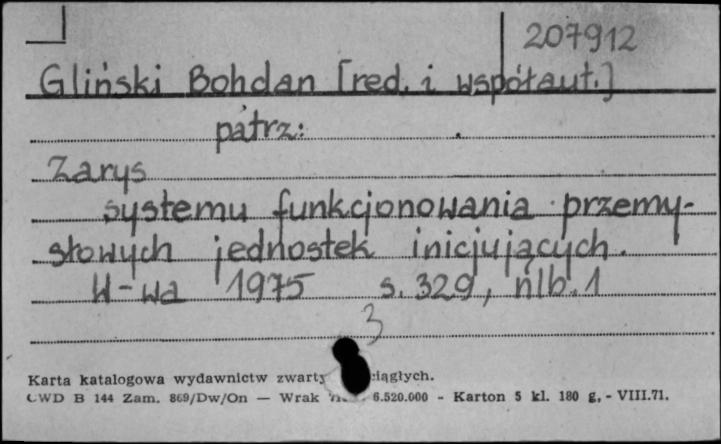 207912
Gliński Bohdan [red. i współaut.]
patrz:
Zarys
systemu funkcjonowania przemy-
słowych jednostek inicjujących.
W-wa 1975 s. 329, nlb. 1
3
Karta katalogowa wydawnictw zwarty ciągłych.
CWD B 144 Zam. 869/Dw/On — Wrak 6.520.000 - Karton 5 kl. 180 g, - VIII.71.